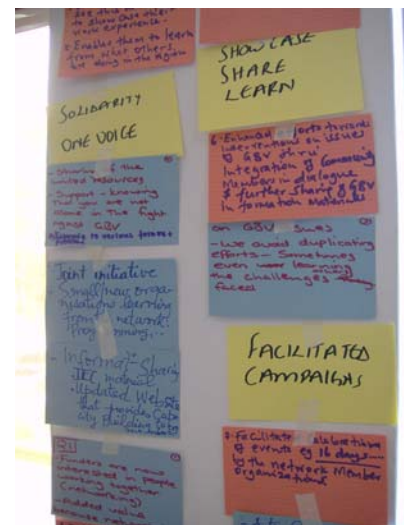 to show case their
work experience.
Enables them to learn
from what others,
are doing in the region
SOLIDARITY
ONE VOICE
- Sharing of the
limited resources
- Support - knowing
that you are not
alone in the fight
against GBV
to various
Joint initiative
- Small/new orga-
nisations learning
from network
programming...
- Informat- Sharing
IEC material
- Updated Website
that provides Capa
city Building
Q1
- Funders are now
interested in people
working together
(networking)
- Added value
because network
SHOWCASE
SHARE
LEARN
6. Enhanced efforts towards
interventions on issues
of GBV thru'
integration of Community
Members in dialogue
& further sharing of GBV
information materials
on GBV issues
- We avoid duplicating
efforts - Sometimes
even learning
the challenges
faced
FACILITATED
CAMPAIGNS
Facilitate
of events eg 16 days...
by the network Member
Organizations